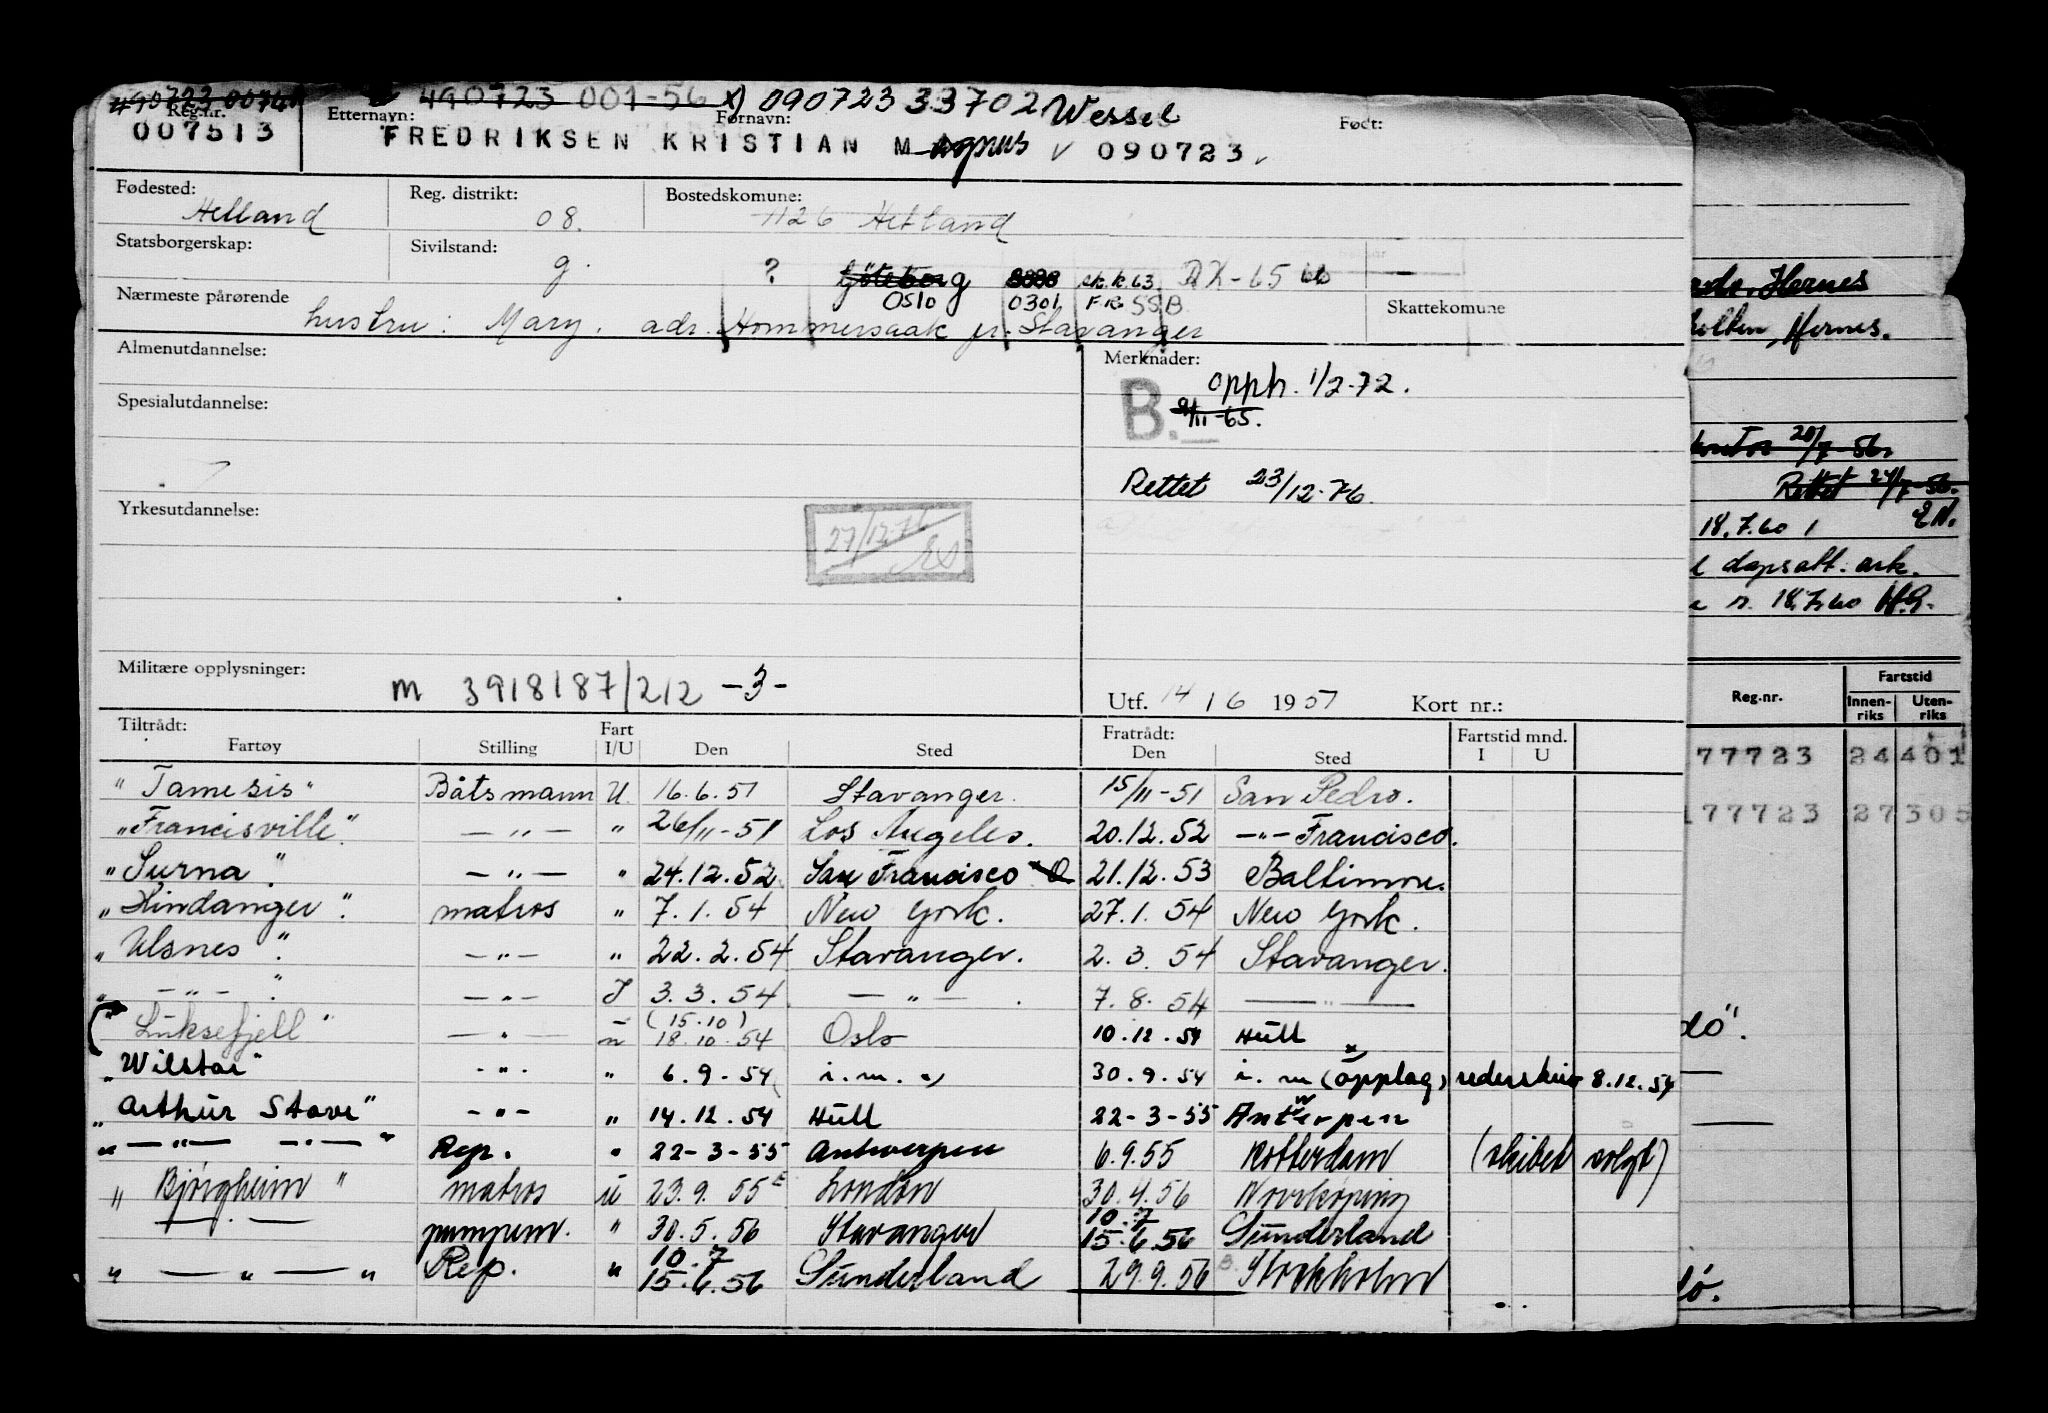 490723 001-56 x) 090723 33702 Wessel
Reg.nr. Etternavn: Fornavn: Født:
007513 FREDRIKSEN KRISTIAN M agnus 090723
Fødested: Reg. distrikt: Bostedskomune:
Hetland 08. 1126 Hetland
Statsborgerskap: Sivilstand:
g. ? Göteborg sk.k.63 RK-65
Nærmeste pårørende OSLO 0301 FR SSB Skattekomune
hustru: Mary. adr. Hommersaak pr. Stavanger
Almenutdannelse: Merknader:
B. opph. 1/2-72.
Spesialutdannelse: 9/11-65.
Rettet 23/12-76.
Yrkesutdannelse:
27/12-76
Militære opplysninger: m 3918187/212 -3-
Utf. 14 / 6 1951 Kort nr.:
Tiltrådt: Fart Fratrådt: Fartstid mnd.
Fartøy Stilling I/U Den Sted Den Sted I U
"Tamesis" Båtsmann U 16.6.51 Stavanger. 15/11-51 San Pedro.
"Francisville" — " — " 26/11-51 Los Angeles. 20.12.52 —"— Francisco.
"Surna" — " — " 24.12.52 San Francisco 21.12.53 Baltimore.
"Hindanger" matros " 7.1.54 New York. 27.1.54 New York.
"Ulsnes" — " — " 22.2.54 Stavanger. 2.3.54 Stavanger.
" — " — " — " — I 3.3.54 — " — 7.8.54 — " —
"Luksefjell" — " — u (15.10) 18.10.54 Oslo 10.12.54 Hull
"Wilstar" - " - " 6.9-54 i.m. 30.9.54 i.m (opplag) rederskriv 8.12.54
"Arthur Stove" - " - " 14.12.54 Hull 22-3-55 Antwerpen
" — " — — " — " Rep. " 22-3-55 Antwerpen 6.9.55 Rotterdam (skibet solgt)
"Bjørgheim" matros u 23.9.55 London 30.4.56 Norrkøping
— " — pumpem. " 30.5.56 Stavanger 10.7 15.6.56 Sunderland
" — " — " Rep. " 10.7 15.6.56 Sunderland 29.9.56 Stockholm
Hernes
Hernes.
20/7-56
Rettet 24/7-56.
18.7.60 EN.
dapsatt. ark.
18.7.60 H.G.
Reg.nr. Fartstid
Innen-riks Uten-riks
77723 24 401
177723 27 305